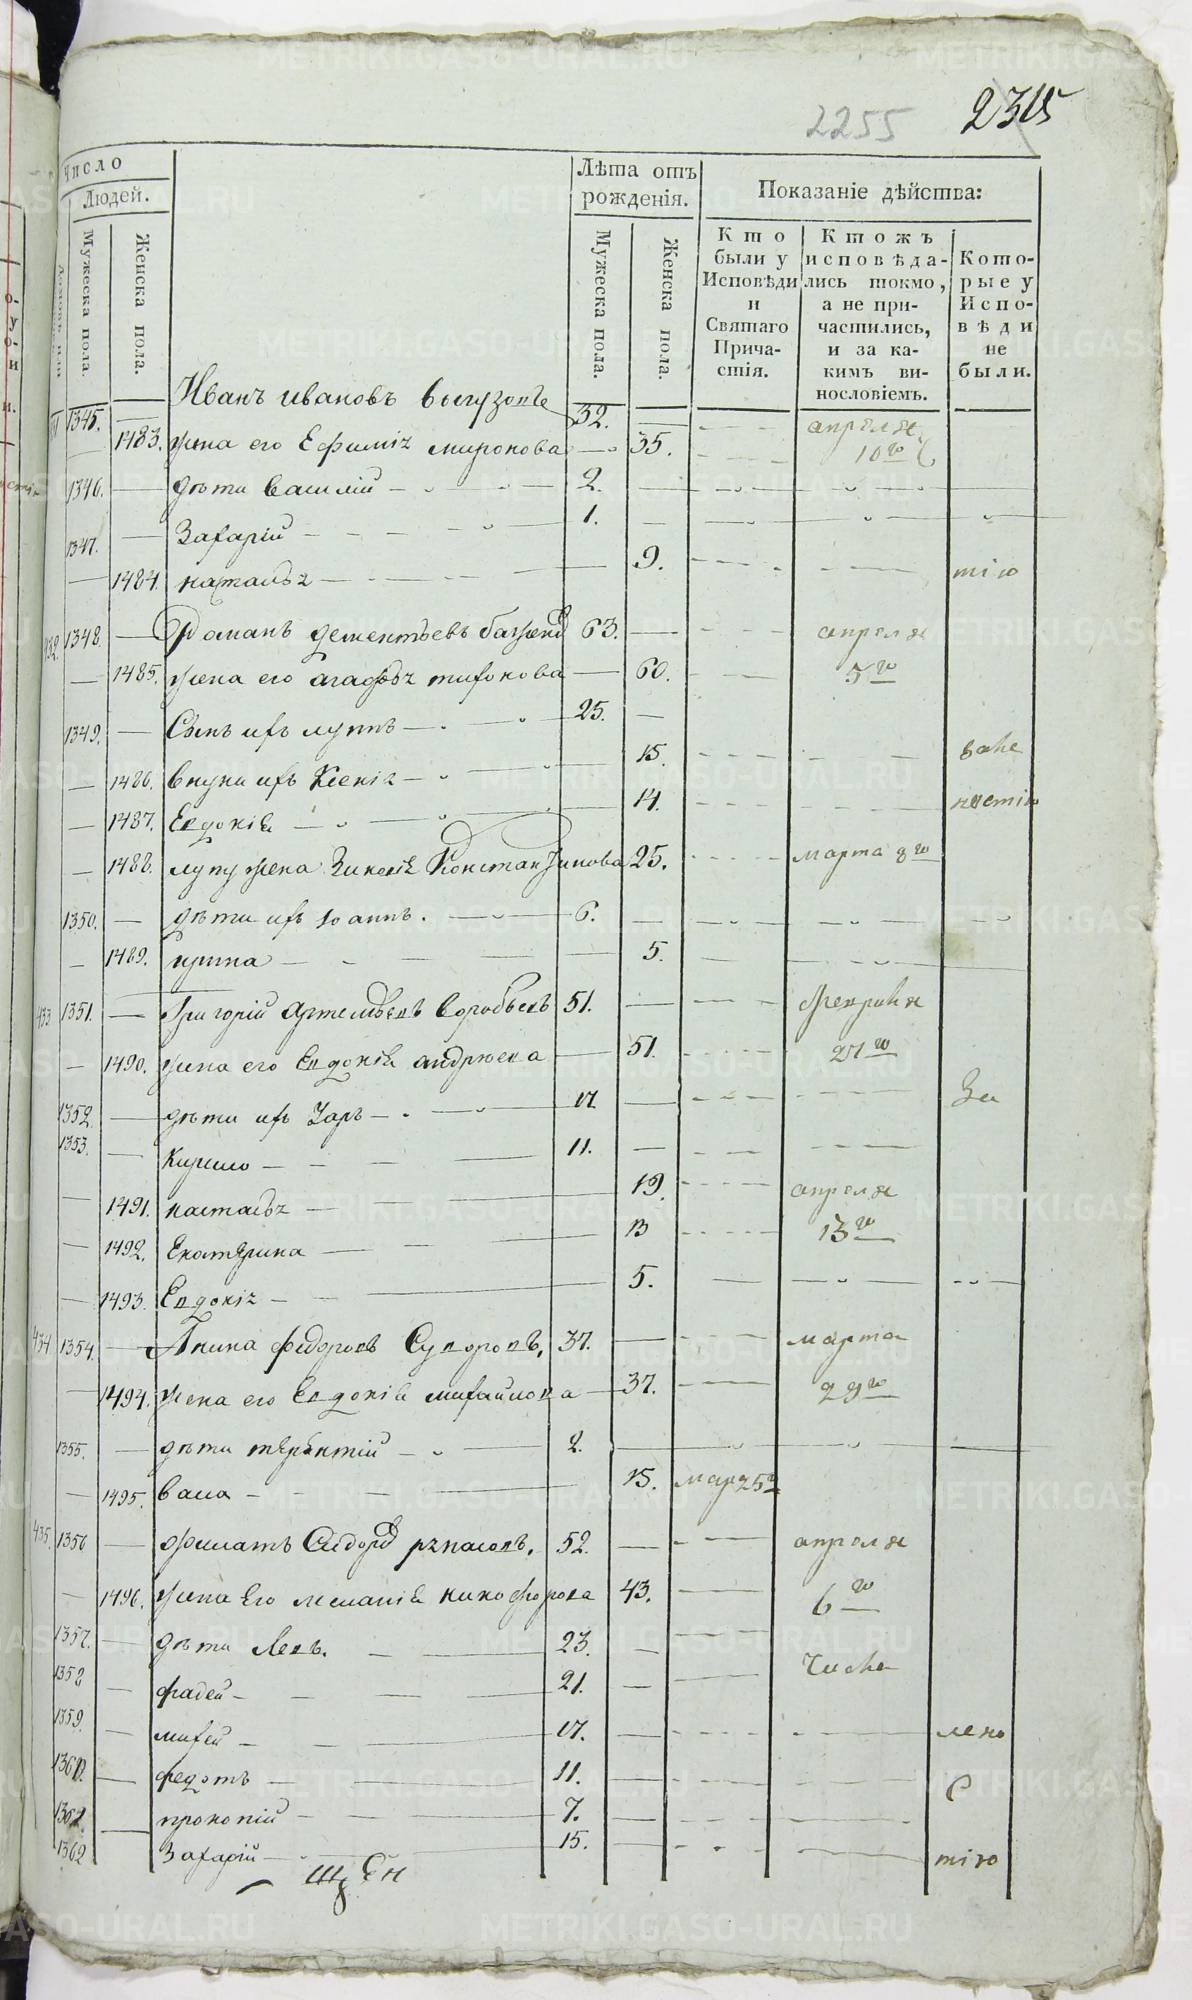 2255 23
Число
Людей.
Мужеска пола.
Женска пола.
Лѣта отъ рожденія.
Мужеска пола.
Женска пола.
Показаніе дѣйства:
Кто были у Исповѣди и Святаго Причастія.
Ктожъ исповѣдались токмо, а не причастились, и за какимъ винословіемъ.
Которые у Исповѣди не были.
1345. Иванъ ивановъ 32. апреля
1483. жена его Ефимія миронова 35. 10го
1346. дѣти Василій 2.
1347. Захарій 1.
1484. наталья 9. тію
432. 1348. Романъ дементьевъ 63. апреля
1485. жена его агафья тихонова 60. 5го
1349. Сынъ ихъ луппъ 25.
1486. внуки ихъ Ксенія 15.
1487. Евдокія 14.
1488. лупу жена Константинова 25. марта 8го
1350. дѣти ихъ Іоаннъ. 6.
1489. ирина 5.
433 1351. Григорій Артемьевъ Воробьевъ 51. февраля
1490. жена его Евдокія андрѣева 51. 27го
1352. дѣти ихъ 17. За
1353. Кирило 11.
1491. настасья 19. апреля
1492. Екатерина 13 13го
1493. Евдокія 5.
434 1354. Аника федоровъ Суворовъ. 37. марта
1494. жена его Евдокія михайлова 37. 29го
1355. дѣти терентій 2.
1495. васса 15. мар 25го
435. 1356 филатъ Сидоровъ 52. апреля
1496. жена Его меланія никифорова 43. 6го
1357. дѣти Левъ. 23.
1358 фадей 21.
1359. михей 17. лено
1360. федотъ 11. с
1361. прокопій 7.
1362 Захарій 15. тію
METRIKI.GASO-URAL.RU